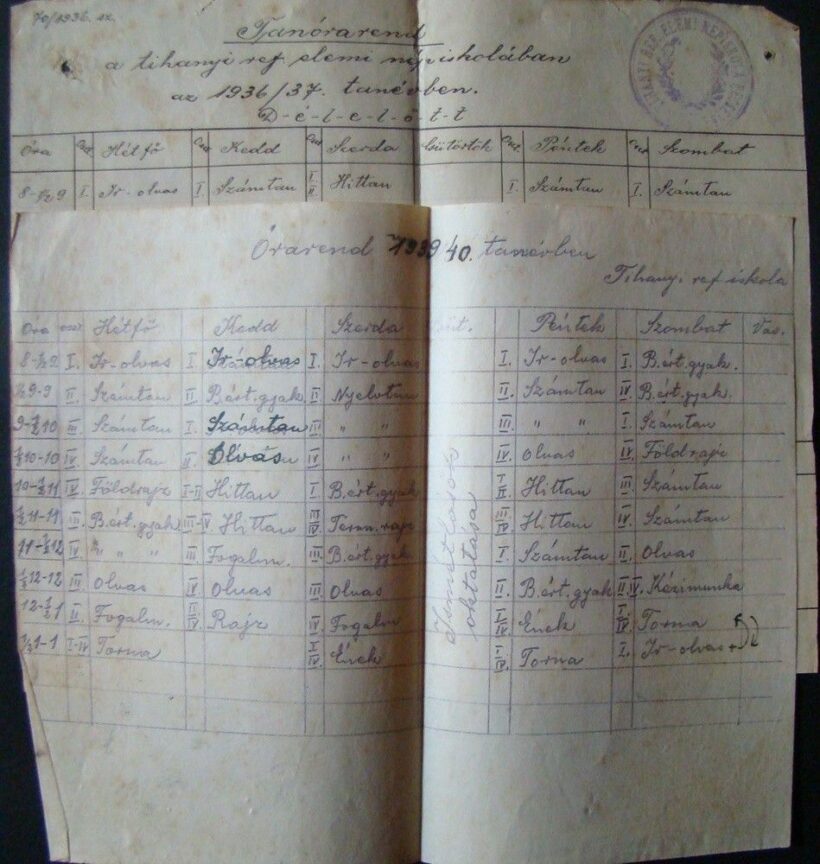 70/1936. sz.
Tanórarend
a tihanyi ref elemi népiskolában
az 1936/37. tanévben.
D-é-l-e-l-ő-t-t
Óra Hétfő Kedd Szerda Csütörtök Péntek Szombat
8-½9 I. Ir-olvas I. Számtan I. II Hittan I. Számtan I. Számtan
Órarend 1939/40. tanévben
Tihany. ref iskola
Óra oszt Hétfő Kedd Szerda Péntek Szombat Vas.
8-½9 I. Ir-olvas I Ir-olvas I. Ir-olvas I. Ir-olvas I. B.ért.gyak.
½9-9 II. Számtan II B.ért.gyak II Nyelvtan II. Számtan IV B.ért.gyak.
9-½10 III. Számtan I. Számtan III " " III " " I. Számtan
½10-10 IV Számtan II Olvás IV " " IV olvas IV Földrajz
10-½11 IV Földrajz I-II Hittan I B.ért.gyak I II Hittan III Számtan
½11-11 III. B.ért.gyak III-IV Hittan III IV Term.rajz III IV Hittan IV. Számtan
11-½12 IV " " " III Fogalm. III B.ért.gyak I Számtan II Olvas
½12-12 III Olvas IV Olvas III Olvas II. B.ért.gyak II.IV. Kézimunka
12-½1 II. Fogalm. IV. Rajz IV Fogalm I. IV Ének I. IV Torna
½1-1 I-IV Torna I IV Ének I. IV Torna I. Ir-olvas
Ismétlősök
oktatása